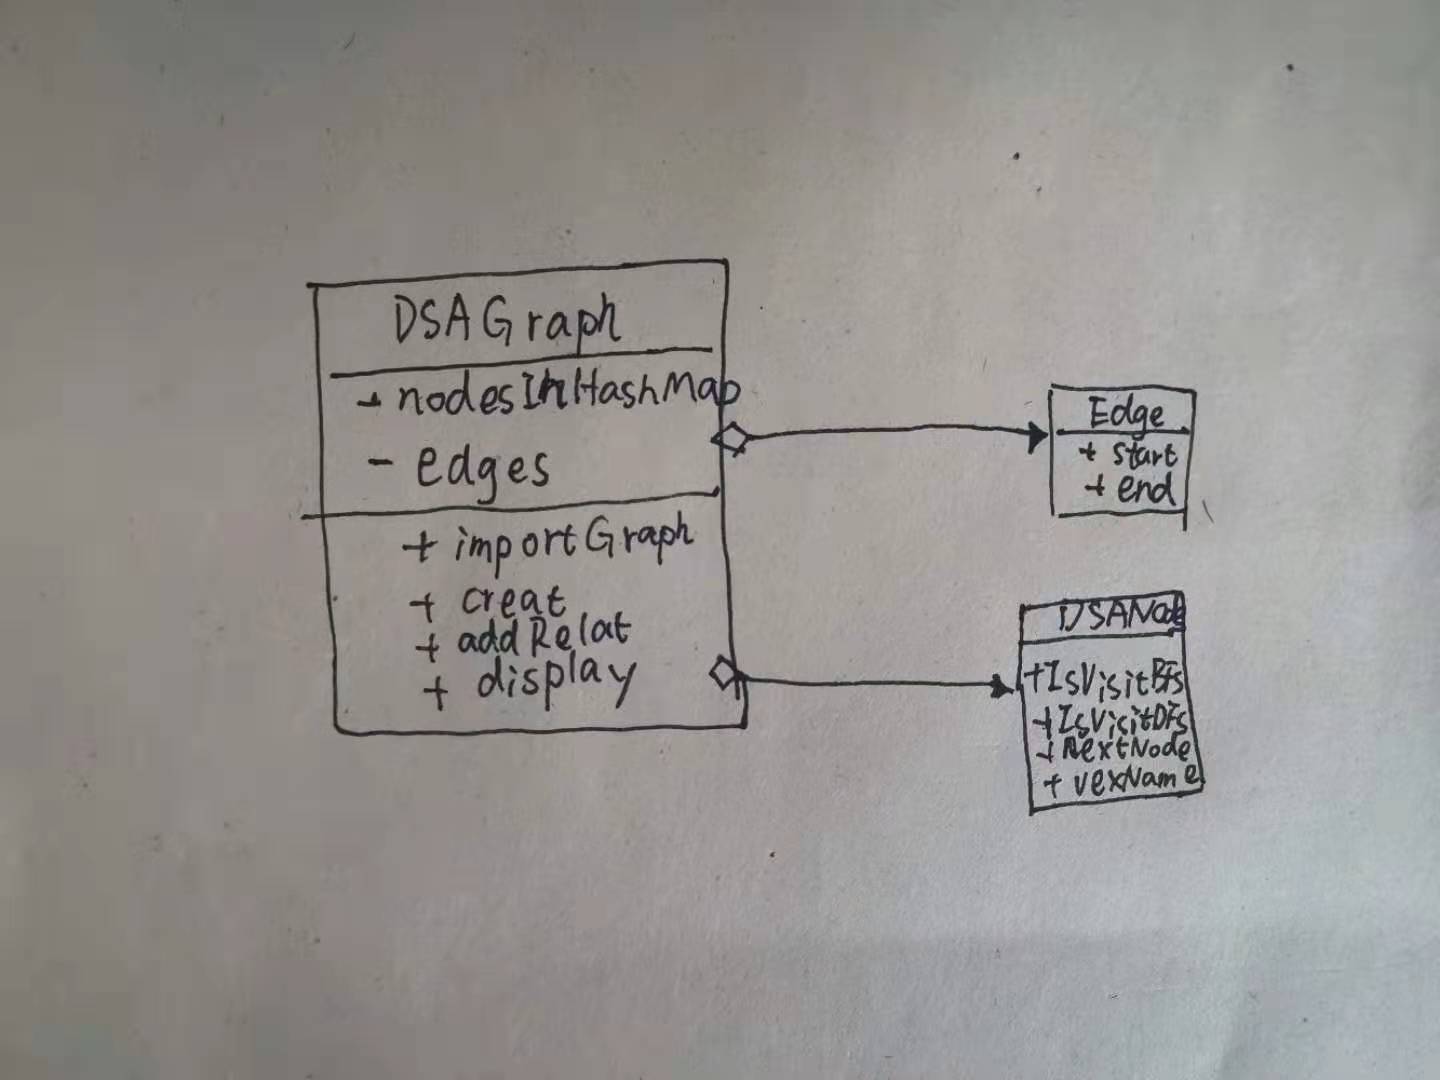 DSAGraph
+ nodesInHashMap
- edges
+ importGraph
+ creat
+ addRelat
+ display
Edge
+ start
+ end
DSANode
+IsVisitBFs
+IsVisitDFs
+ NextNode
+ vexName